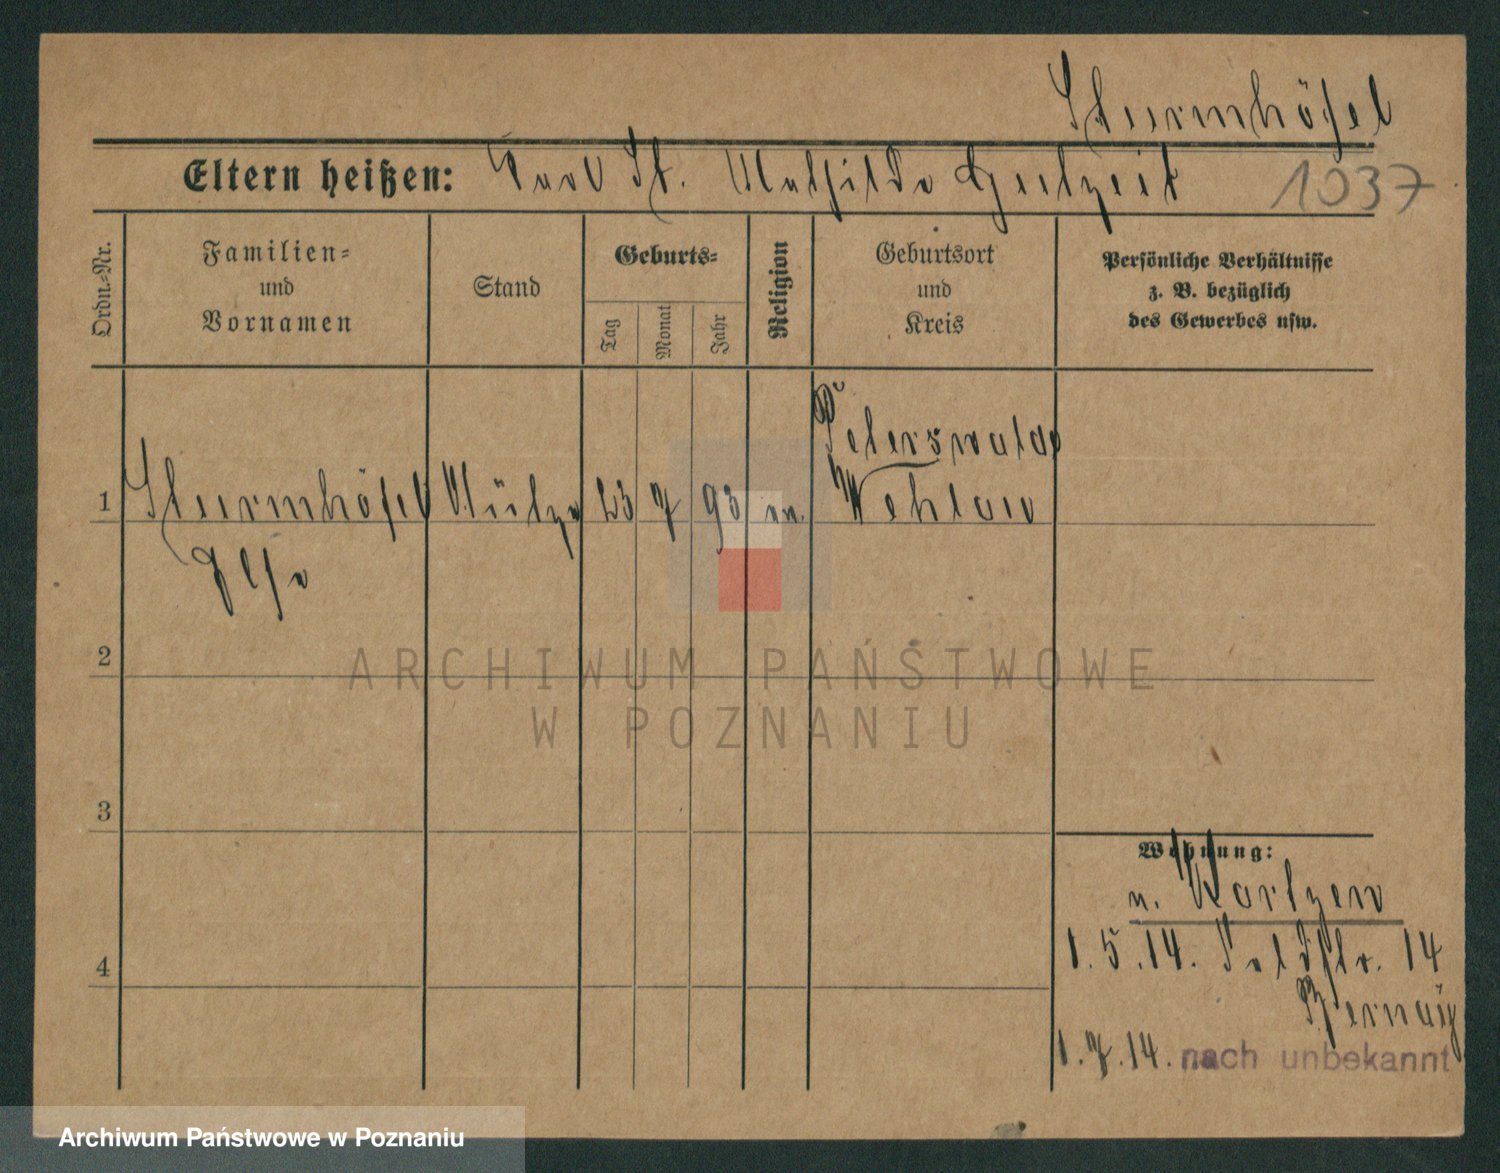 Sturmhöfel
Eltern heißen: Karl St. Mathilde Gutzeit
1037
Ordn.-Nr.
Familien-
und
Vornamen
Stand
Geburts-
Tag
Monat
Jahr
Religion
Geburtsort
und
Kreis
Persönliche Verhältnisse
z. B. bezüglich
des Gewerbes usw.
Peterswalde
1 Sturmhöfel 23 7 93 Wehlau
Else
2
3
4
Wohnung:
1.5.14. Feldstr. 14
1.7.14. nach unbekannt
ARCHIWUM PAŃSTWOWE
W POZNANIU
Archiwum Państwowe w Poznaniu